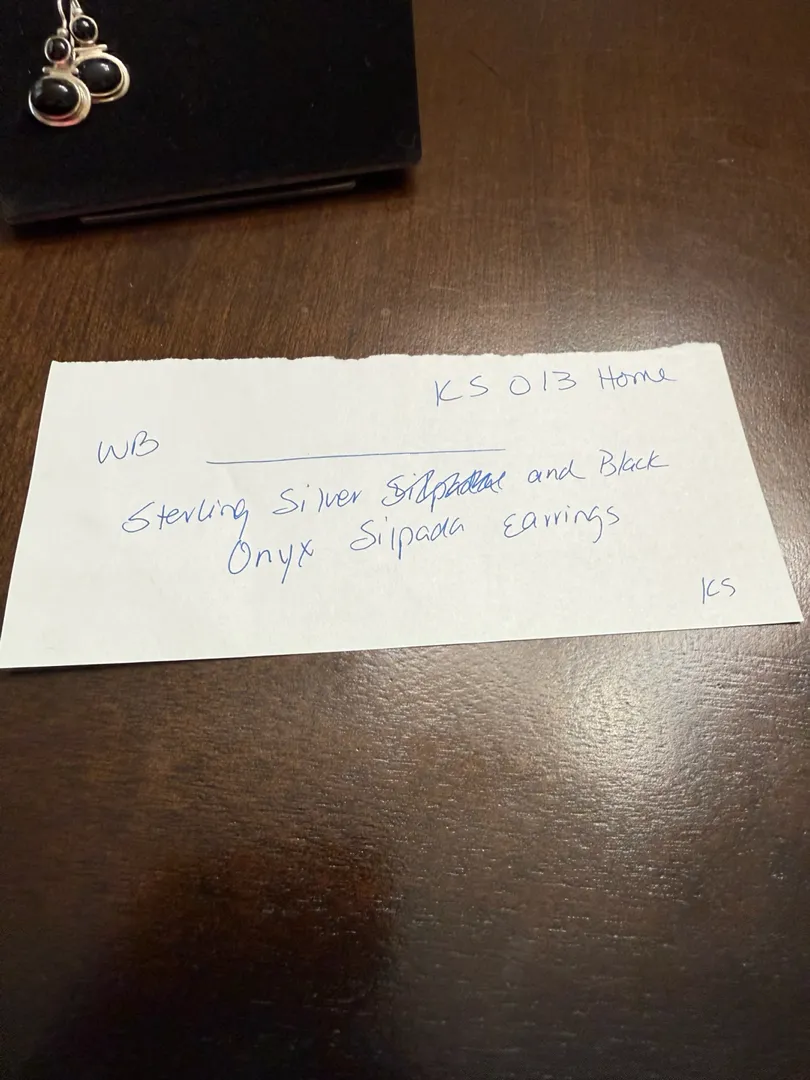 KS 013 Home
WB
Sterling Silver and Black
Onyx Silpada Earrings
KS